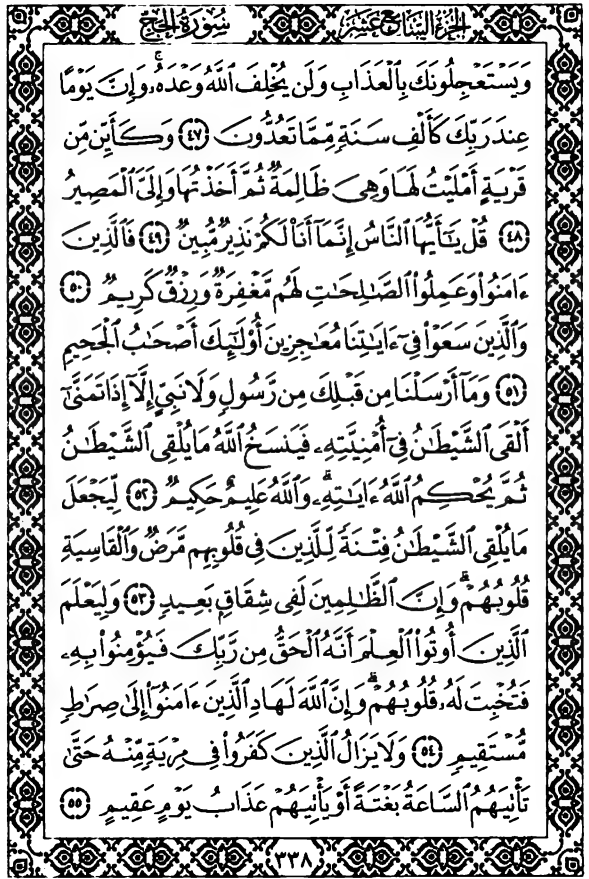 الجزء السابع عشر
سورة الحج
وَيَسْتَعْجِلُونَكَ بِالْعَذَابِ وَلَن يُخْلِفَ اللَّهُ وَعْدَهُۥ ۚ وَإِنَّ يَوْمًا
عِندَ رَبِّكَ كَأَلْفِ سَنَةٍ مِّمَّا تَعُدُّونَ ٤٧ وَكَأَيِّن مِّن
قَرْيَةٍ أَمْلَيْتُ لَهَا وَهِيَ ظَالِمَةٌ ثُمَّ أَخَذْتُهَا وَإِلَيَّ الْمَصِيرُ
٤٨ قُلْ يَٰٓأَيُّهَا النَّاسُ إِنَّمَآ أَنَا۠ لَكُمْ نَذِيرٌ مُّبِينٌ ٤٩ فَالَّذِينَ
ءَامَنُوا۟ وَعَمِلُوا۟ الصَّٰلِحَٰتِ لَهُم مَّغْفِرَةٌ وَرِزْقٌ كَرِيمٌ ٥٠
وَالَّذِينَ سَعَوْا۟ فِىٓ ءَايَٰتِنَا مُعَٰجِزِينَ أُو۟لَٰٓئِكَ أَصْحَٰبُ الْجَحِيمِ
٥١ وَمَآ أَرْسَلْنَا مِن قَبْلِكَ مِن رَّسُولٍ وَلَا نَبِىٍّ إِلَّآ إِذَا تَمَنَّىٰٓ
أَلْقَى الشَّيْطَٰنُ فِىٓ أُمْنِيَّتِهِۦ فَيَنسَخُ اللَّهُ مَا يُلْقِى الشَّيْطَٰنُ
ثُمَّ يُحْكِمُ اللَّهُ ءَايَٰتِهِۦ ۗ وَاللَّهُ عَلِيمٌ حَكِيمٌ ٥٢ لِّيَجْعَلَ
مَا يُلْقِى الشَّيْطَٰنُ فِتْنَةً لِّلَّذِينَ فِى قُلُوبِهِم مَّرَضٌ وَالْقَاسِيَةِ
قُلُوبُهُمْ ۗ وَإِنَّ الظَّٰلِمِينَ لَفِى شِقَاقٍ بَعِيدٍ ٥٣ وَلِيَعْلَمَ
الَّذِينَ أُوتُوا۟ الْعِلْمَ أَنَّهُ الْحَقُّ مِن رَّبِّكَ فَيُؤْمِنُوا۟ بِهِۦ
فَتُخْبِتَ لَهُۥ قُلُوبُهُمْ ۗ وَإِنَّ اللَّهَ لَهَادِ الَّذِينَ ءَامَنُوٓا۟ إِلَىٰ صِرَٰطٍ
مُّسْتَقِيمٍ ٥٤ وَلَا يَزَالُ الَّذِينَ كَفَرُوا۟ فِى مِرْيَةٍ مِّنْهُ حَتَّىٰ
تَأْتِيَهُمُ السَّاعَةُ بَغْتَةً أَوْ يَأْتِيَهُمْ عَذَابُ يَوْمٍ عَقِيمٍ ٥٥
٣٣٨